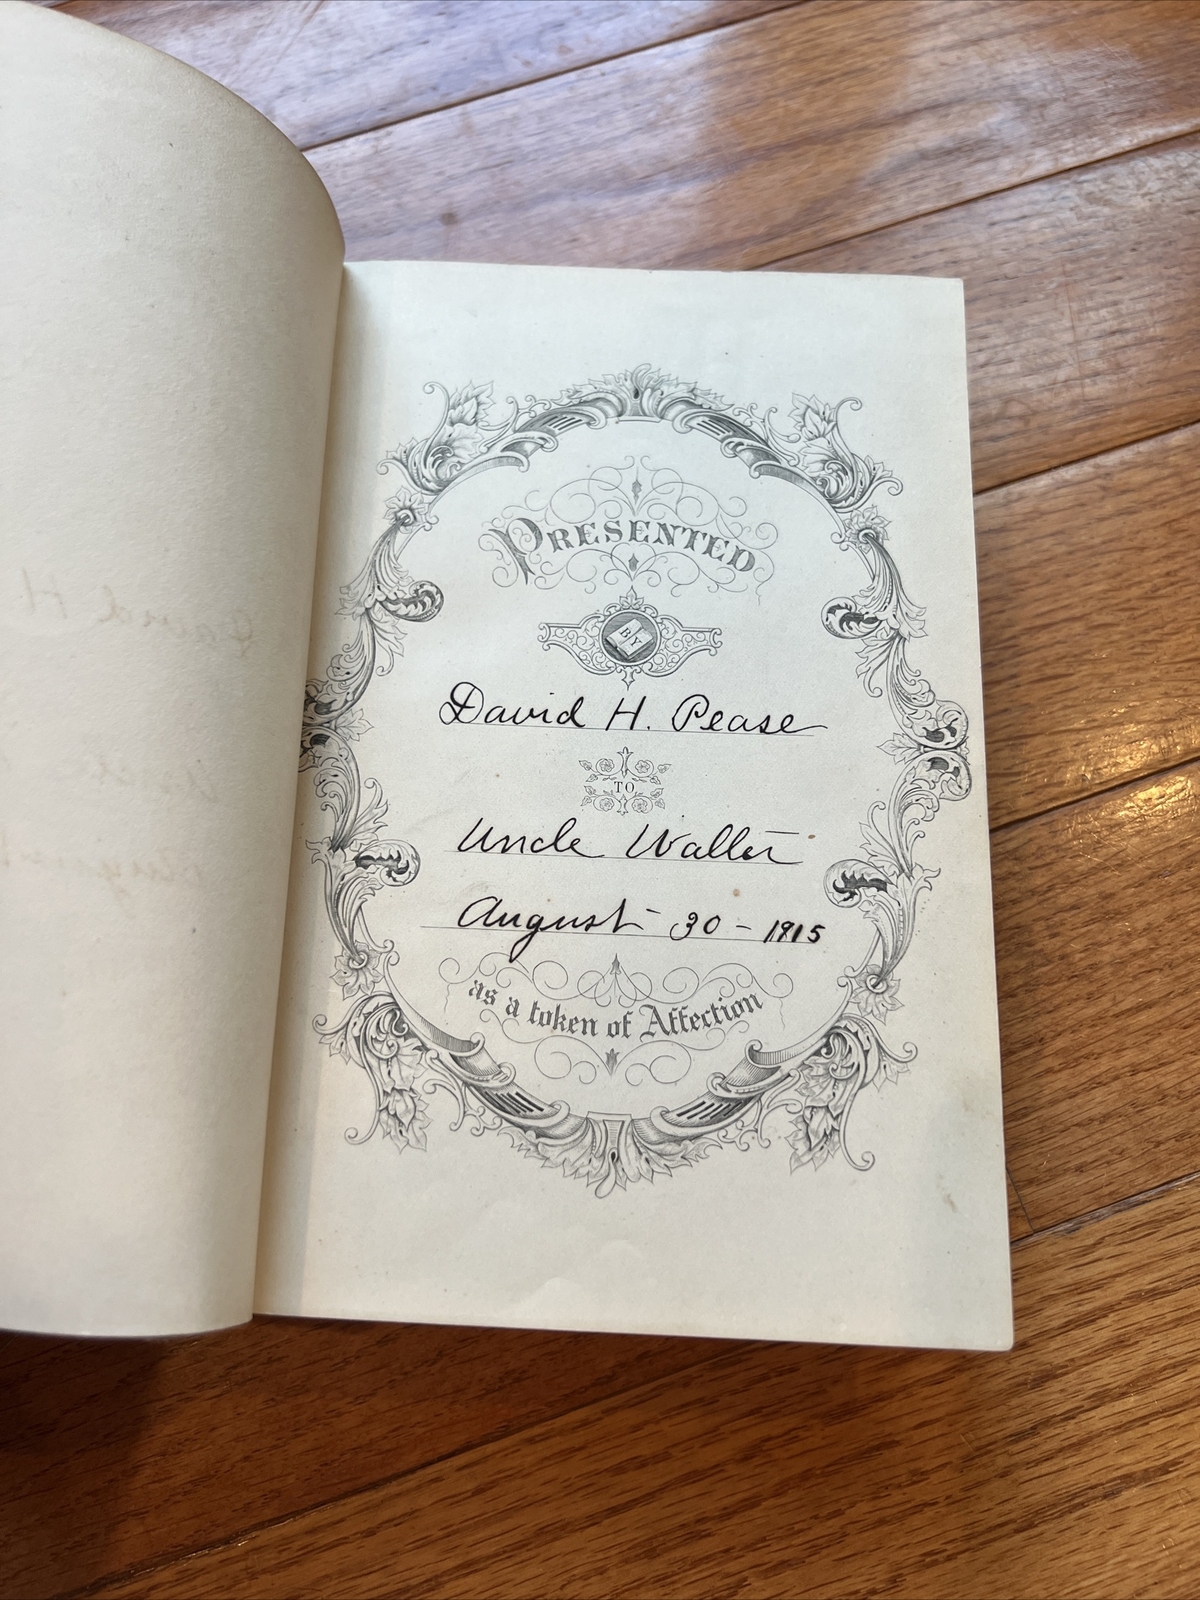 PRESENTED
BY
David H. Pease
TO
Uncle Walter
August 30 - 1915
as a token of Affection